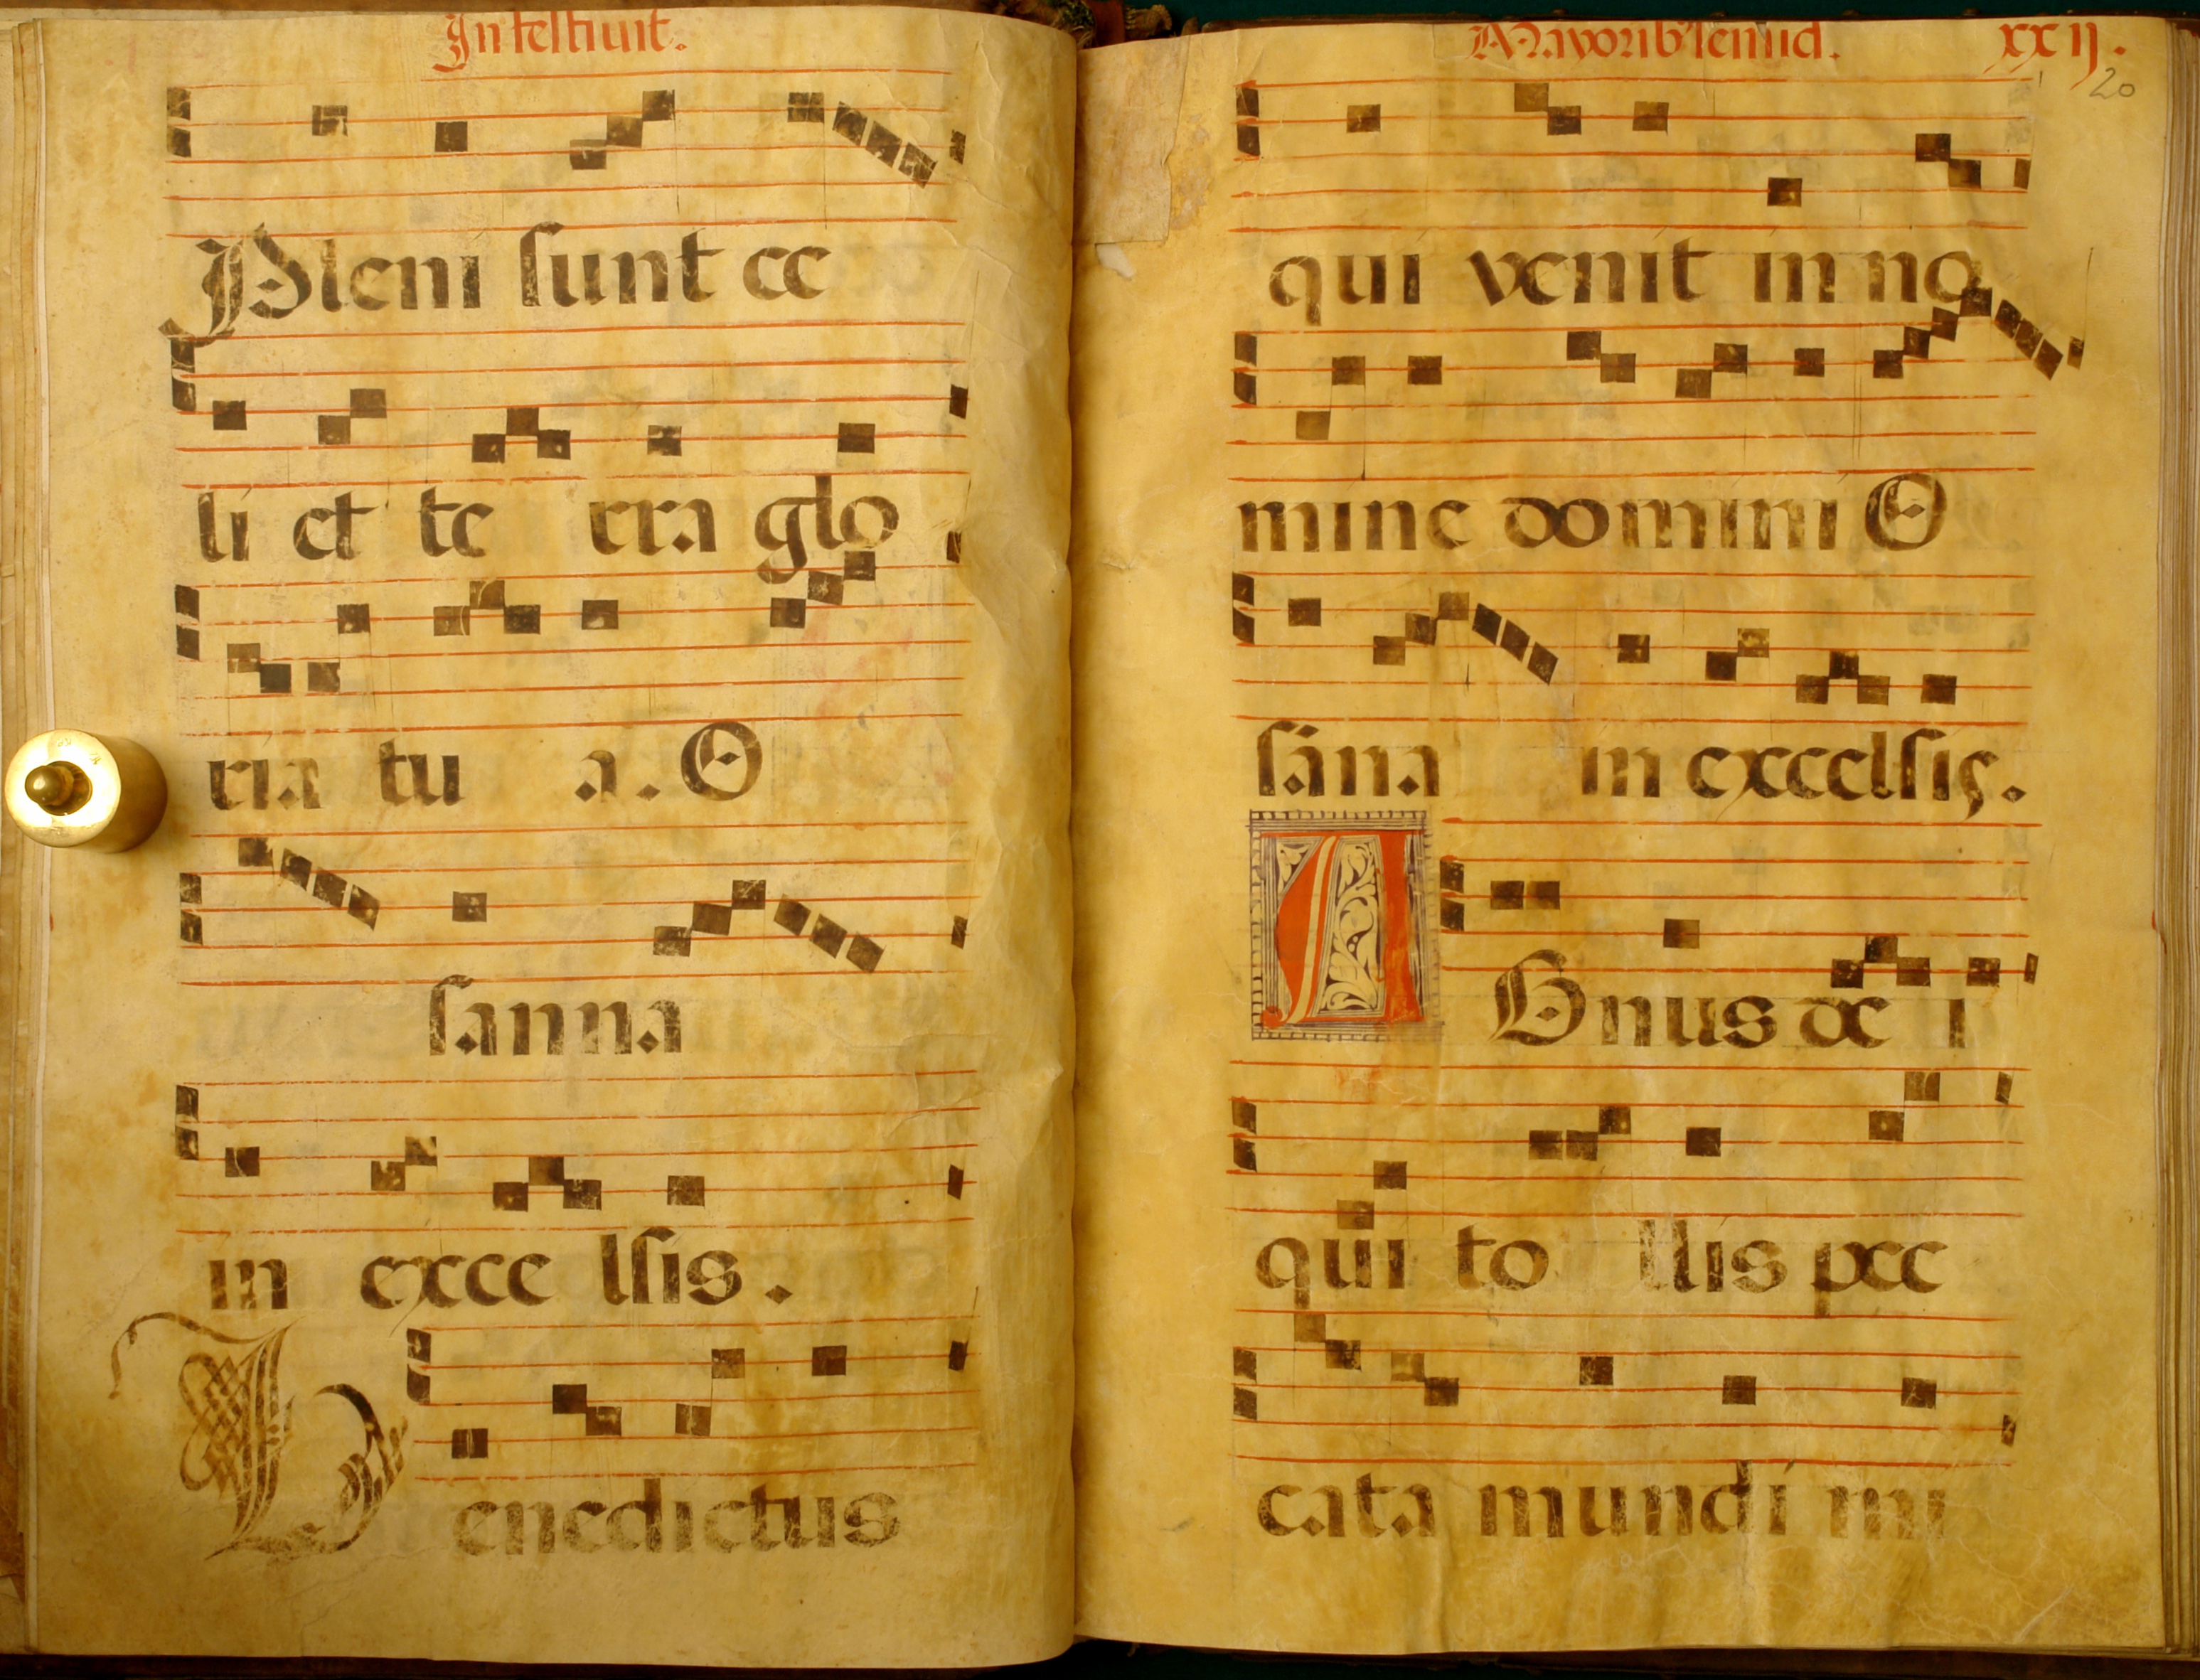 In festiuit.
Pleni sunt ce
li et te rra glo
ria tu a. O
sanna
in exce lsis.
Benedictus
Mayorib' semid. xxij.
20
qui venit in no
mine domini O
sana in excelsis.
AGnus de i
qui to llis pec
cata mundi mi